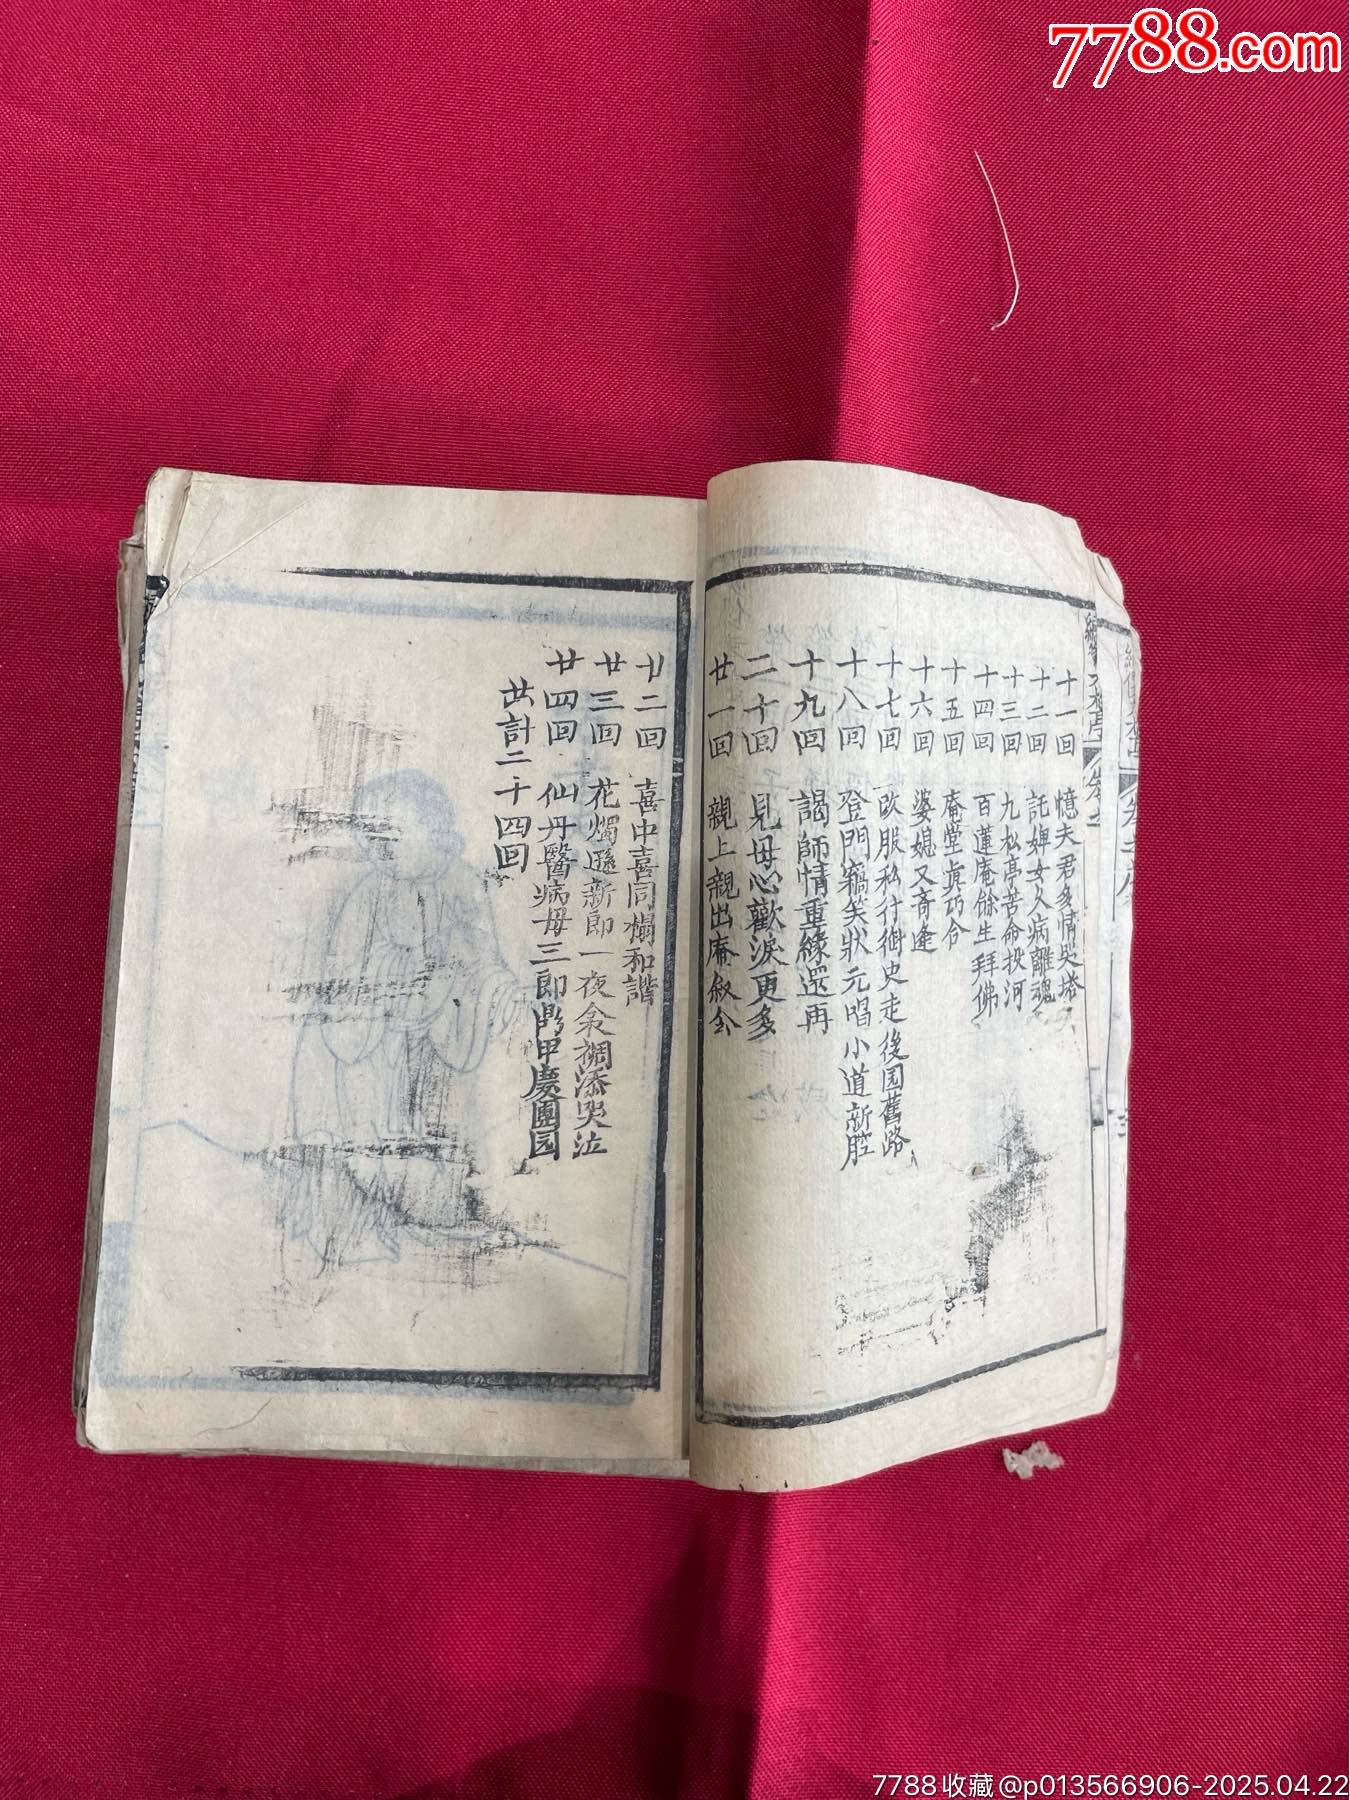 7788.com
十一回 憶夫君多情哭塔
十二回 託婢女久病離魂
十三回 九松亭苦命投河
十四回 百蓮庵餘生拜佛
十五回 庵堂眞巧合
十六回 婆媳又奇逢
十七回 改服私行御史走後园舊路
十八回 登門竊笑狀元唱小道新腔
十九回 謁師情重緣還再
二十回 見母心歡淚更多
廿一回 親上親出庵叙会
廿二回 喜中喜同榻和諧
廿三回 花燭遜新郎一夜衾裯添哭泣
廿四回 仙丹醫病母三郎鼎甲慶團园
共計二十四回
7788收藏@p013566906-2025.04.22